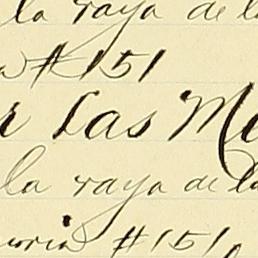 la raya de la
#151
Las
la raya de la
#151